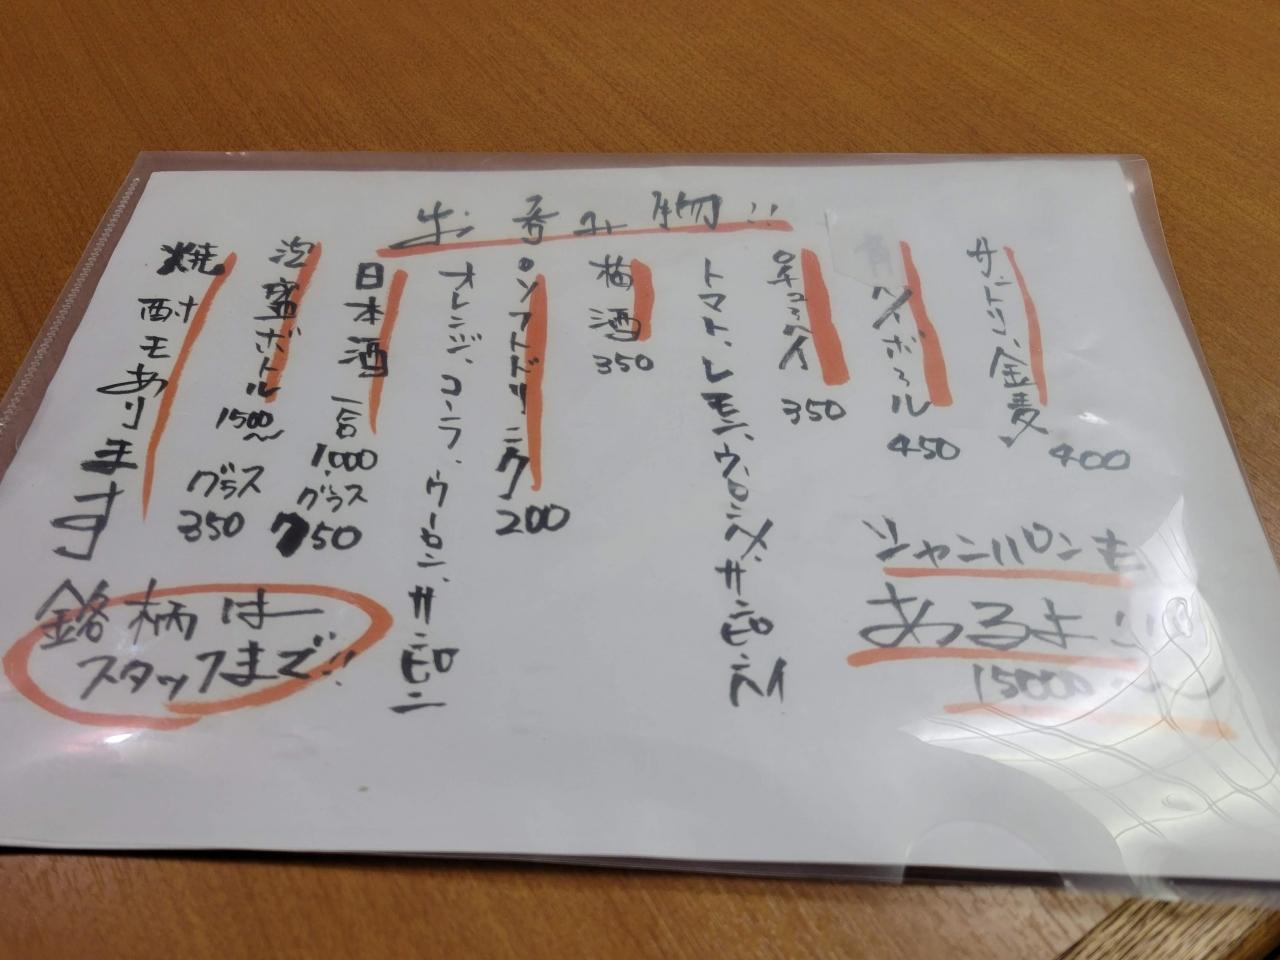 お呑み物!!
サントリー金麦 400
ハイボール 450
○チューハイ 350
トマト、レモン、ウーロン、サンピン
梅酒 350
○ソフトドリンク 200
オレンジ、コーラ、ウーロン、サンピン
日本酒 一合 1,000 グラス 750
泡盛ボトル 1500〜 グラス 350
焼酎モあります
銘柄は
スタッフまで!!
シャンパンも
あるよ!!
15000〜